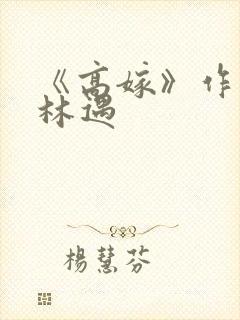 《高嫁》作
林遇
楊慧芬